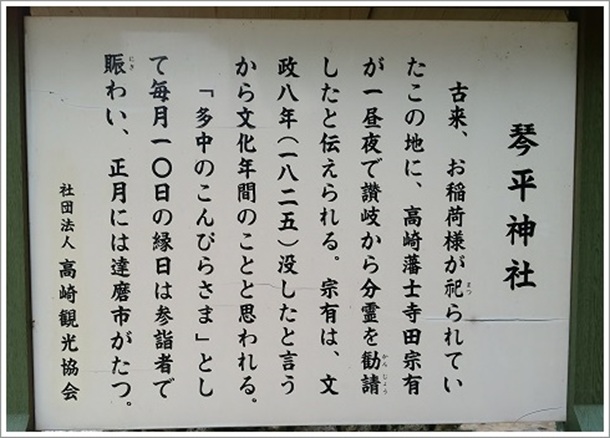 琴平神社
古来、お稲荷様が祀られてい
たこの地に、高崎藩士寺田宗有
が一昼夜で讃岐から分霊を勧請
したと伝えられる。宗有は、文
政八年(一八二五)没したと言う
から文化年間のことと思われる。
「多中のこんぴらさま」とし
て毎月一〇日の縁日は参詣者で
賑わい、正月には達磨市がたつ。
社団法人 高崎観光協会
まつ
かんじょう
にぎ